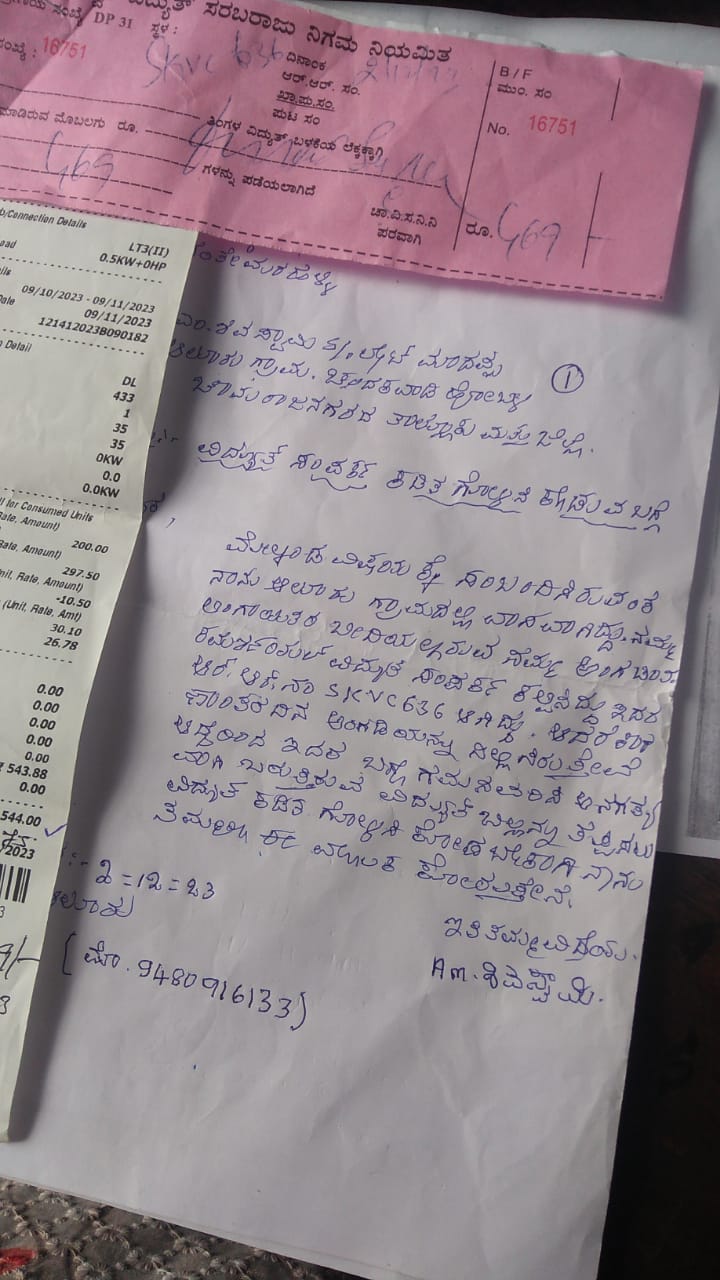 ವಿದ್ಯುತ್ ಸರಬರಾಜು ನಿಗಮ ನಿಯಮಿತ
ಸಂಖ್ಯೆ DP 31 ಸ್ಥಳ :
ಸಂಖ್ಯೆ : 16751
SKVC 636 ದಿನಾಂಕ
ಆರ್.ಆರ್. ಸಂ.
ಖಾ.ಪು.ಸಂ.
ಪುಟ ಸಂ
ಮಾಡಿರುವ ಮೊಬಲಗು ರೂ.
ತಿಂಗಳ ವಿದ್ಯುತ್ ಬಳಕೆಯ ಲೆಕ್ಕಕ್ಕಾಗಿ
569
ಗಳನ್ನು ಪಡೆಯಲಾಗಿದೆ
ಚಾ.ವಿ.ಸ.ನಿ.ನಿ
ಪರವಾಗಿ
B/F
ಮುಂ. ಸಂ
No. 16751
ರೂ. 569/-
Connection Details
LT3(II)
0.5KW+0HP
09/10/2023 - 09/11/2023
09/11/2023
121412023B090182
Detail
DL
433
1
35
35
0KW
0.0
0.0KW
for Consumed Units
Rate, Amount)
200.00
Rate, Amount)
297.50
Unit, Rate, Amount)
-10.50
(Unit, Rate, Amt)
30.10
26.78
0.00
0.00
0.00
0.00
0.00
543.88
0.00
544.00
/2023
ಸಂತೇಮರಹಳ್ಳಿ
ಎಂ. ಶಿವಸ್ವಾಮಿ S/. ಲೇಟ್ ಮಾದಪ್ಪ
ಆಲೂರು ಗ್ರಾಮ. ಚಂದಕವಾಡಿ ಹೋಬಳಿ
1
ಚಾಮರಾಜನಗರದ ತಾಲ್ಲೂಕು ಮತ್ತು ಜಿಲ್ಲೆ.
ವಿದ್ಯುತ್ ಸಂಪರ್ಕ ಕಡಿತ ಗೊಳ್ಳಿಸಿ ಕೊಡುವ ಬಗ್ಗೆ
ಮೇಲ್ಕಂಡ ವಿಷಯಕ್ಕೆ ಸಂಬಂದಿಸಿರುವಂತೆ
ನಾನು ಆಲೂರು ಗ್ರಾಮದಲ್ಲಿ ವಾಸವಾಗಿದ್ದು. ನಮ್ಮ
ಲಿಂಗಾಯಿತರ ಬೀದಿಯಲ್ಲಿರುವ ನಮ್ಮ ಅಂಗಡಿಯ
ಕಮರ್ಶಿಯಲ್ ವಿದ್ಯುತ ಸಂಪರ್ಕ ಕಲ್ಪಿಸಿದ್ದು ಇದರ
ಆರ್. ಆರ್. ನಂ SKVC636 ಆಗಿದ್ದು. ಆದರೆ ಈಗ
ದಿನ ಅಂಗಡಿಯನ್ನು ನಿಲ್ಲಿಸಿರುತ್ತೇವೆ
ಆದ್ದರಿಂದ ಇದರ ಬಗ್ಗೆ ಗಮನಹರಿಸಿ ಅನಗತ್ಯ
ವಾಗಿ ಬರುತ್ತಿರುವ ವಿದ್ಯುತ್ ಬಿಲ್ಲನ್ನು ತಪ್ಪಿಸಲು
ವಿದ್ಯುತ ಕಡಿತ ಗೊಳ್ಳಿಸಿ ಕೊಡಬೇಕಾಗಿ ನಾನು
ನಿಮ್ಮಲ್ಲಿ ಈ ಮೂಲಕ ಕೋರುತ್ತೇನೆ.
:- 2=12=23
ಆಲೂರು
ಇತಿ ತಮ್ಮ ವಿದೇಯ.
Am. ಶಿವಸ್ವಾಮಿ.
(ಮೊ. 9480916133)